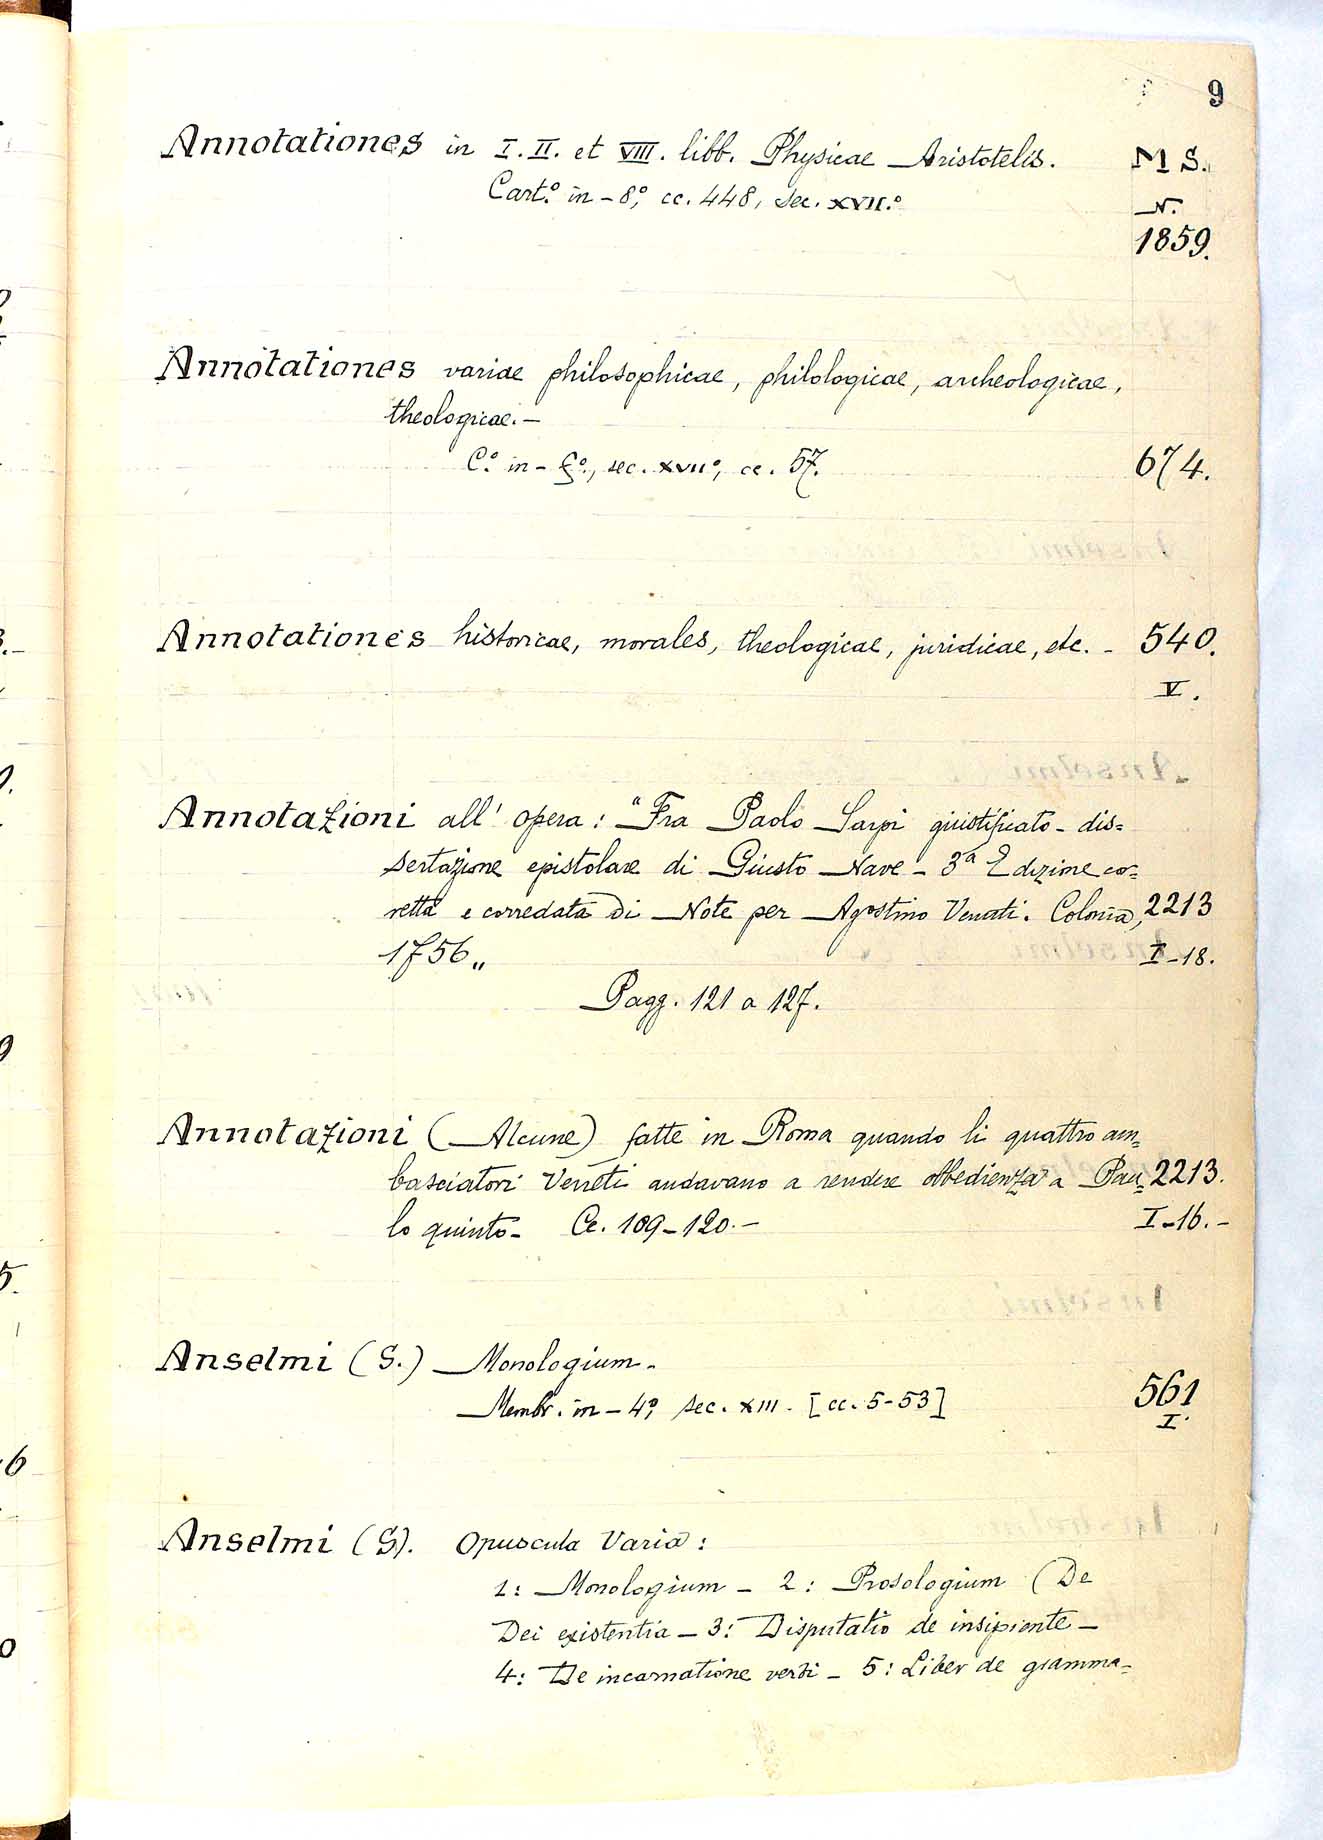 9
Annotationes in I. II. et VIII. libb. Physicae Aristotelis. MS.
Cart.º in-8º, cc. 448, sec. XVII.º N.
1859.
Annotationes variae philosophicae, philologicae, archeologicae,
theologicae.-
C.º in-fº., sec. XVIIº, cc. 57. 674.
Annotationes historicae, morales, theologicae, juridicae, etc. - 540.
V.
Annotazioni all' opera: "Fra Paolo Sarpi giustificato - dis=
sertazione epistolare di Giusto Nave - 3ª Edizione co=
retta e corredata di Note per Agostino Venuti. Colonia, 2213
1756„ I-18.
Pagg. 121 a 127.
Annotazioni (Alcune) fatte in Roma quando li quattro am=
basciatori Veneti andavano a rendere obbedienza a Pau= 2213.
lo quinto- Cc. 109-120.- I-16.-
Anselmi (S.) Monologium.
Membr. in-4º, sec. XIII. [cc. 5-53] 561
I.
Anselmi (S). Opuscula Varia:
1: Monologium - 2: Prosologium (De
Dei existentia - 3: Disputatio de insipiente -
4: De incarnatione verbi - 5: Liber de gramma=